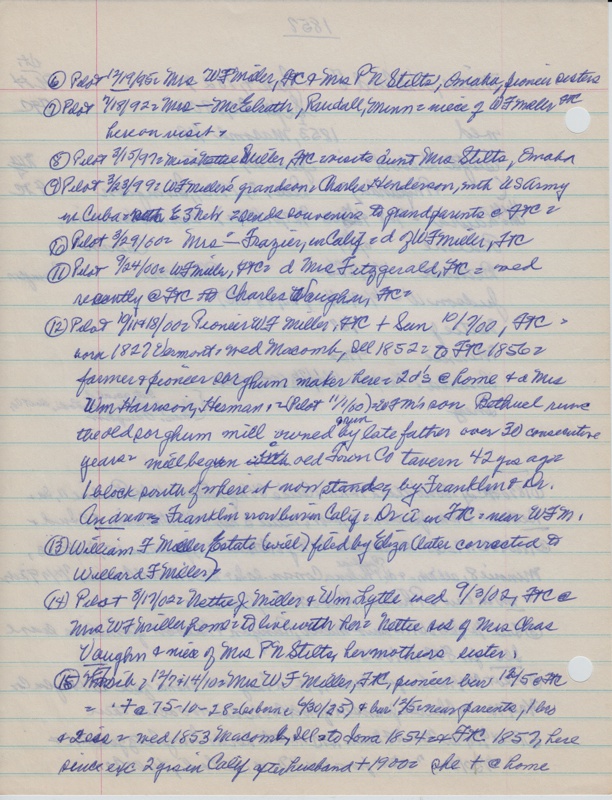 1857
⑥ Pilot 12/19/95= Mrs WF Miller, FC & Mrs P N Stilts, Omaha, pioneer sisters
⑦ Pilot 3/18/92= Mrs — McElrath, Randall, Minn= niece of WF Miller FC
here on visit=
⑧ Pilot 3/15/97= Miss Nettie Miller, FC visits aunt Mrs Stilts, Omaha
⑨ Pilot 3/23/99= WF Miller's grandson= Charles Henderson, with US Army
in Cuba= Co E 3 Neb = sends souvenirs to grandparents @ FC=
⑩ Pilot 3/29/00= Mrs — Frazier, in Calif= d of WF Miller, FC
⑪ Pilot 9/24/00= WF Miller, FC= d Mrs Fitzgerald, FC= wed
recently @ FC to Charles Vaughn, FC=
⑫ Pilot 10/11&18/00= Pioneer WF Miller, FC + Sun 10/7/00, FC=
born 1827 Vermont= wed Macomb, Ill 1852= to FC 1856=
farmer & pioneer sorghum maker here= 2 d's @ home & a Mrs
Wm Harrison, Herman,= (Pilot 11/1/00)= WFM's son Bethuel runs
the old sorghum mill owned & run by late father over 30 consecutive
years= mill began in old Town Co tavern 42 yrs ago
1 block south of where it now stands, by Franklin & Dr.
Andrew= Franklin now living in Calif= Dr it in FC= near WFM.
⑬ William F Miller (Estate (will) filed by Eliza (later corrected to
Willard F Miller)
⑭ Pilot 9/17/02= Nettie J. Miller & Wm Lytle wed 9/3/02, FC @
Mrs WF Miller home= to live with her= Nettie sis of Mrs Chas
Vaughn & niece of Mrs P N Stilts, her mothers sister.
⑮ 12/7&14/10= Mrs WF Miller, FC, pioneer bur 12/5 @ FC
= + @ 75-10-28= (born 30/25) & bur 12/5= near parents, 1 bro
& 2 sis= wed 1853 Macomb, Ill= to Iowa 1854= FC 1857, here
since exc 2 yrs in Calif after husband + 1900= she + @ home